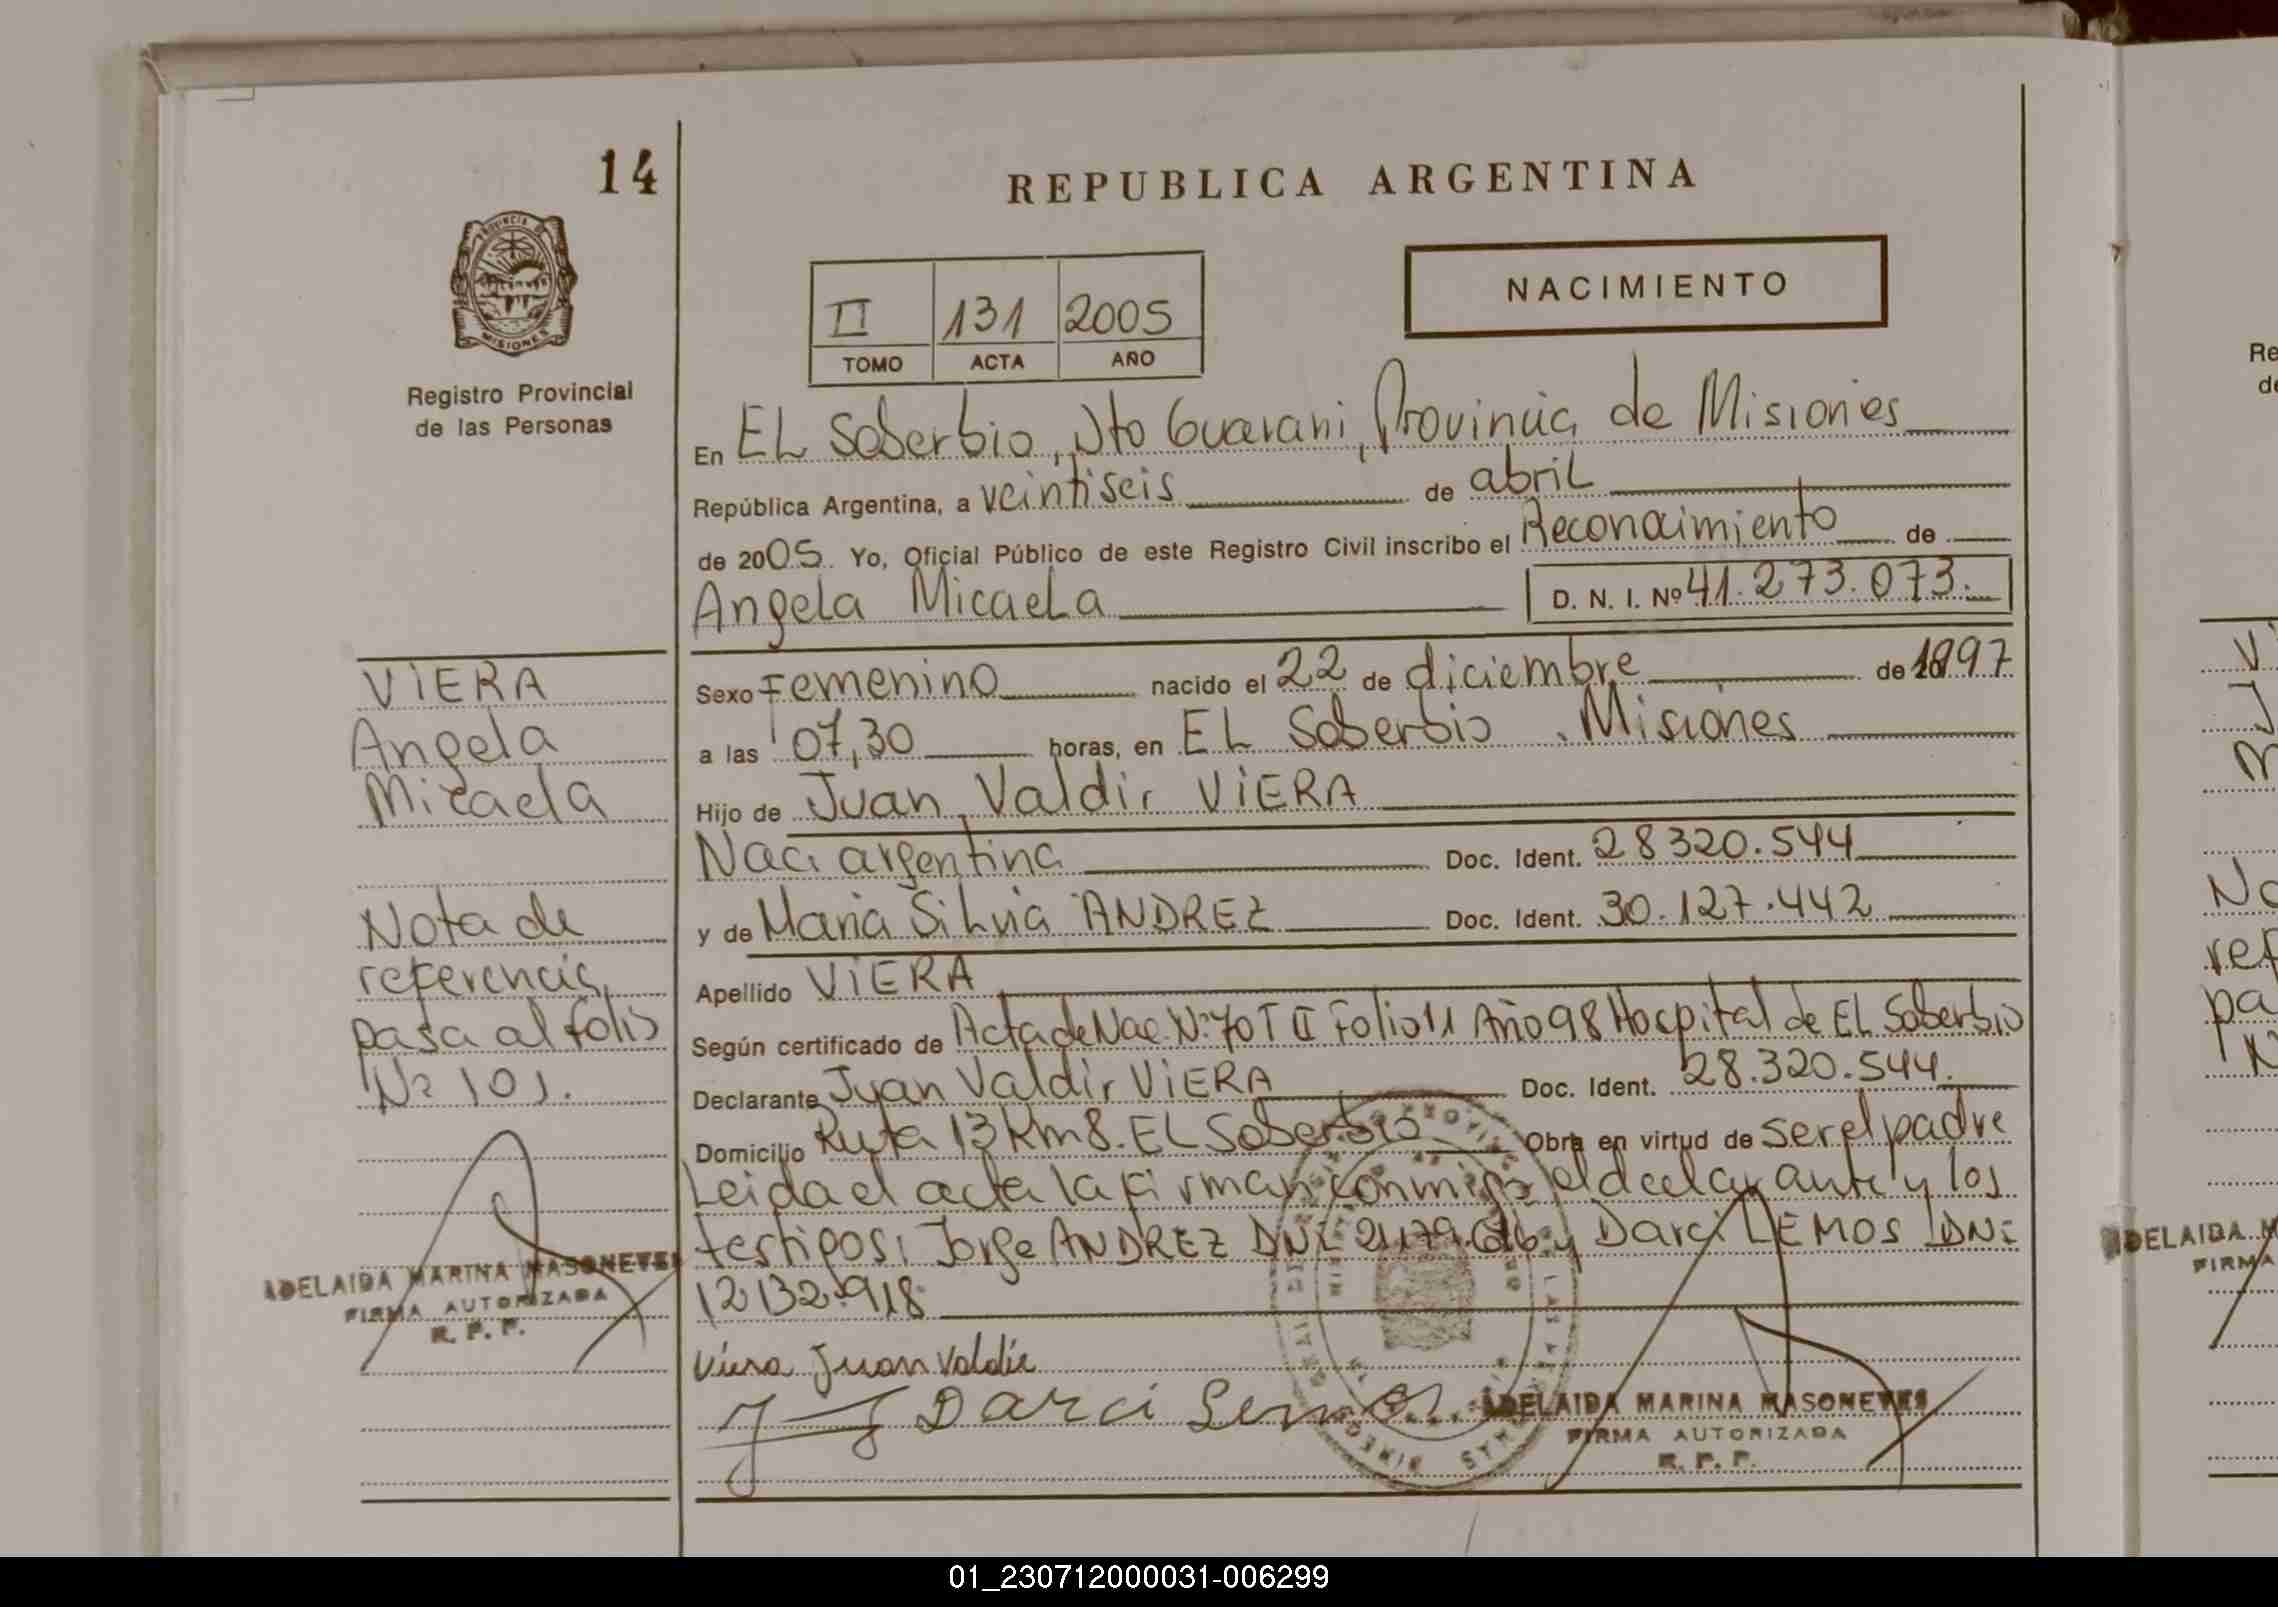 14
REPUBLICA ARGENTINA
PROVINCIA DE
MISIONES
Registro Provincial
de las Personas
NACIMIENTO
II 131 2005
TOMO ACTA AÑO
En EL Soberbio, Dto Guarani, Provincia de Misiones
República Argentina, a veintiseis de abril
de 2005. Yo, Oficial Público de este Registro Civil inscribo el Reconocimiento de
Angela Micaela D. N. I. Nº 41.273.073.
VIERA
Angela
Micaela
Nota de
referencia
pasa al folio
Nº 101.
ADELAIDA MARINA MASONEVES
FIRMA AUTORIZADA
R. P. P.
Sexo Femenino nacido el 22 de diciembre de 1997
a las 07,30 horas, en EL Soberbio, Misiones
Hijo de Juan Valdir VIERA
Naci argentina Doc. Ident. 28320.544
y de Maria Silvia ANDREZ Doc. Ident. 30.127.442
Apellido VIERA
Según certificado de Acta de Nac. Nº 70 T II Folio 11 Año 98 Hospital de EL Soberbio
Declarante Juan Valdir VIERA Doc. Ident. 28.320.544.
Domicilio Ruta 13 Km 8. EL Soberbio Obra en virtud de ser el padre
Leida el acta la firman conmigo el declarante y los
testigos: Jorge ANDREZ DNI y Darci LEMOS DNI
12132.918
Viera Juan Valdir
Darci Lemos
ADELAIDA MARINA MASONEVES
FIRMA AUTORIZADA
R. P. P.
01_230712000031-006299